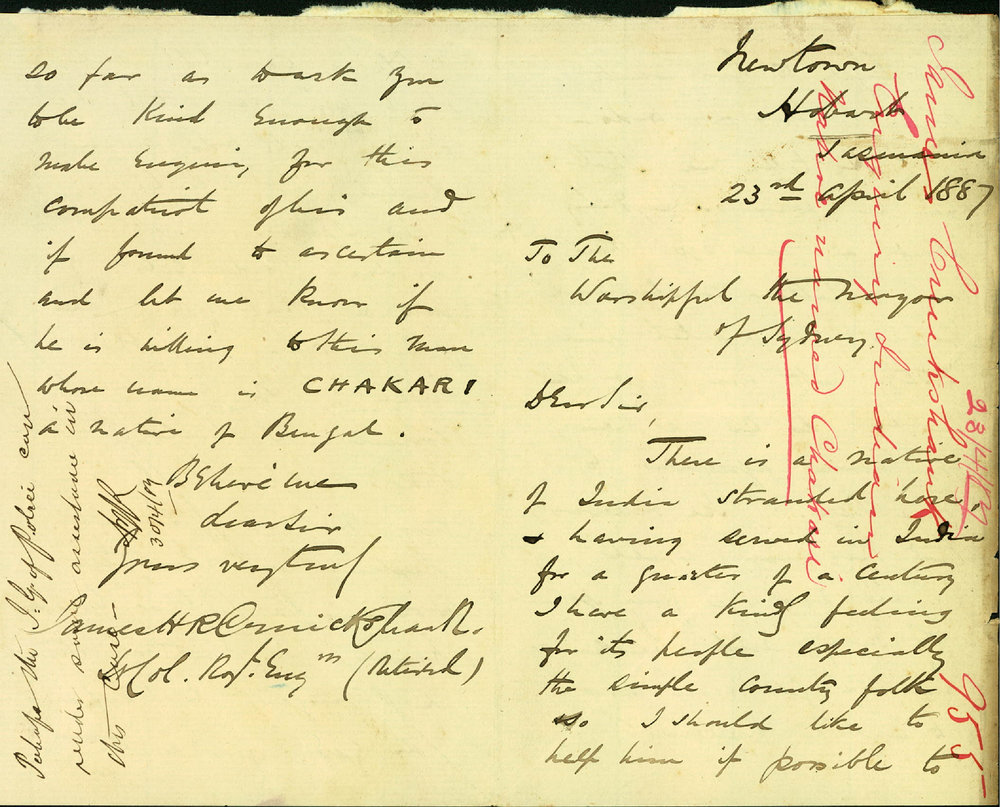 Newtown
Hobart
Tasmania
23rd April 1887
To The
Worshipful the Mayor
of Sydney.
Dear Sir,
There is a native
of India stranded here,
& having served in India
for a quarter of a century
I have a kindly feeling
for its people especially
the simple country folk
so I should like to
help him if possible to
so far as to ask you
to be kind enough to
make enquiry for this
compatriot of his and
if found to ascertain
and let me know if
he is willing to this man
whose name is CHAKARI
a native of Bengal.
Believe me
dear Sir
yours very truly
James H R Cruickshank.
Col. Roy. Engrs (Retired)
Perhaps the I.G. of Police can
render some assistance in
this case
30/4/87
James Cruickshank
Enquiring Indian
native named Chakari
23/4/87
955